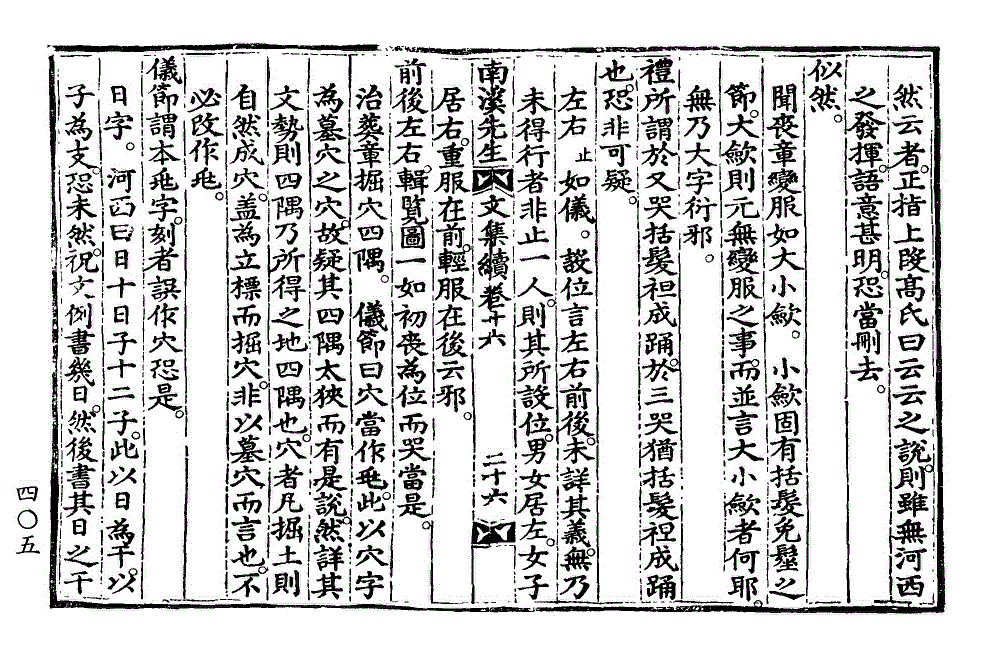 然云者。正指上段高氏曰云云之說。則雖無河西
之發揮。語意甚明。恐當刪去。
似然。
聞喪章變服如大小斂。 小斂固有括髮免髽之
節。大斂則元無變服之事。而並言大小斂者何耶。
無乃大字衍邪。
禮所謂於又哭括髮袒成踊。於三哭猶括髮袒成踊
也。恐非可疑。
左右(止)如儀。 設位言左右前後。未詳其義。無乃
未得行者非止一人。則其所設位。男女居左。女子
南溪先生文集續卷十六 二十六
居右。重服在前。輕服在後云邪。
前後左右。輯覽圖一如初喪為位而哭當是。
治葬章掘穴四隅。 儀節曰穴當作兆。此以穴字
為墓穴之穴。故疑其四隅太狹而有是說。然詳其
文勢則四隅乃所得之地四隅也。穴者凡掘土則
自然成穴。蓋為立標而掘穴。非以墓穴而言也。不
必改作兆。
儀節謂本兆字。刻者誤作穴恐是。
日字。 河西曰日十日子十二子。此以日為干。以
子為支。恐未然。祝文例書幾日。然後書其日之干
四〇五